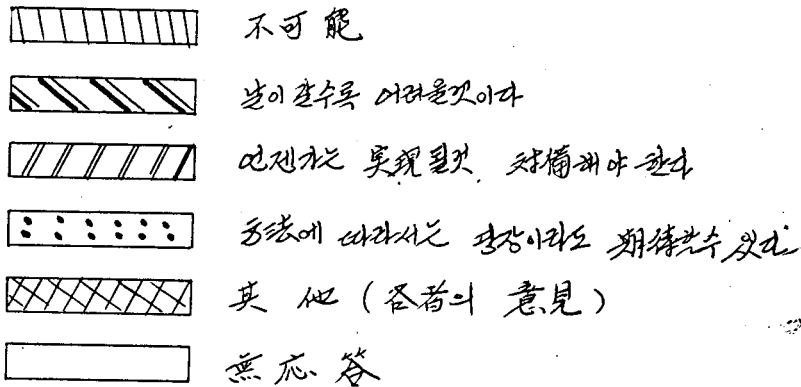 不可能
날이 갈수록 어려울것이다
언젠가는 実現될것, 対備해야 한다
方法에 따라서는 당장이라도 期待할수 있다
其他 (各者의 意見)
無応答